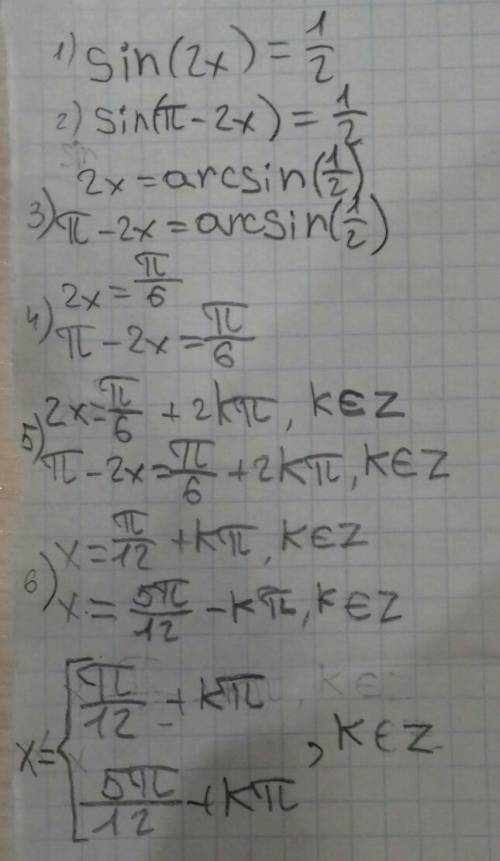 1) sin(2x) = 1/2
2) sin(π - 2x) = 1/2
2x = arcsin(1/2)
3) π - 2x = arcsin(1/2)
2x = π/6
4) π - 2x = π/6
2x = π/6 + 2kπ, k∈Z
5) π - 2x = π/6 + 2kπ, k∈Z
x = π/12 + kπ, k∈Z
6) x = 5π/12 - kπ, k∈Z
π/12 + kπ
x = { , k∈Z
5π/12 + kπ